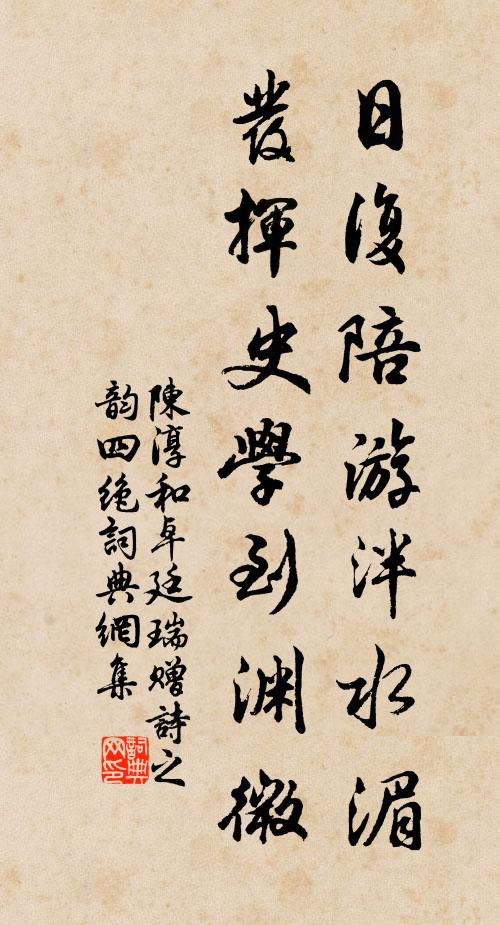 日復陪游泮水湄
發揮史學到淵微
陳淳和卓廷瑞贈詩之
韵四绝詞典網集
詞典网印